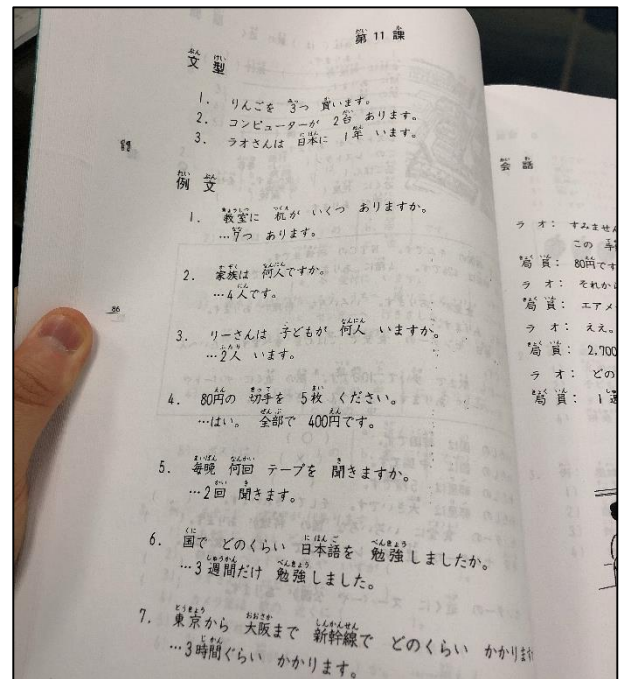 第 11 課
文 型
1. りんごを 3つ 買います。
2. コンピューターが 2台 あります。
3. ラオさんは 日本に 1年 います。
例 文
1. 教室に 机が いくつ ありますか。
…7つ あります。
2. 家族は 何人ですか。
…4人です。
3. リーさんは 子どもが 何人 いますか。
…2人 います。
4. 80円の 切手を 5枚 ください。
…はい。 全部で 400円です。
5. 毎晩 何回 テープを 聞きますか。
…2回 聞きます。
6. 国で どのくらい 日本語を 勉強しましたか。
…3週間だけ 勉強しました。
7. 東京から 大阪まで 新幹線で どのくらい かかります
…3時間ぐらい かかります。
86
会 話
ラ オ： すみませ
この 手
局 員： 80円です
ラ オ： それから
局 員： エアメ
ラ オ： ええ。
局 員： 2,700
ラ オ： どの
局 員： 1週